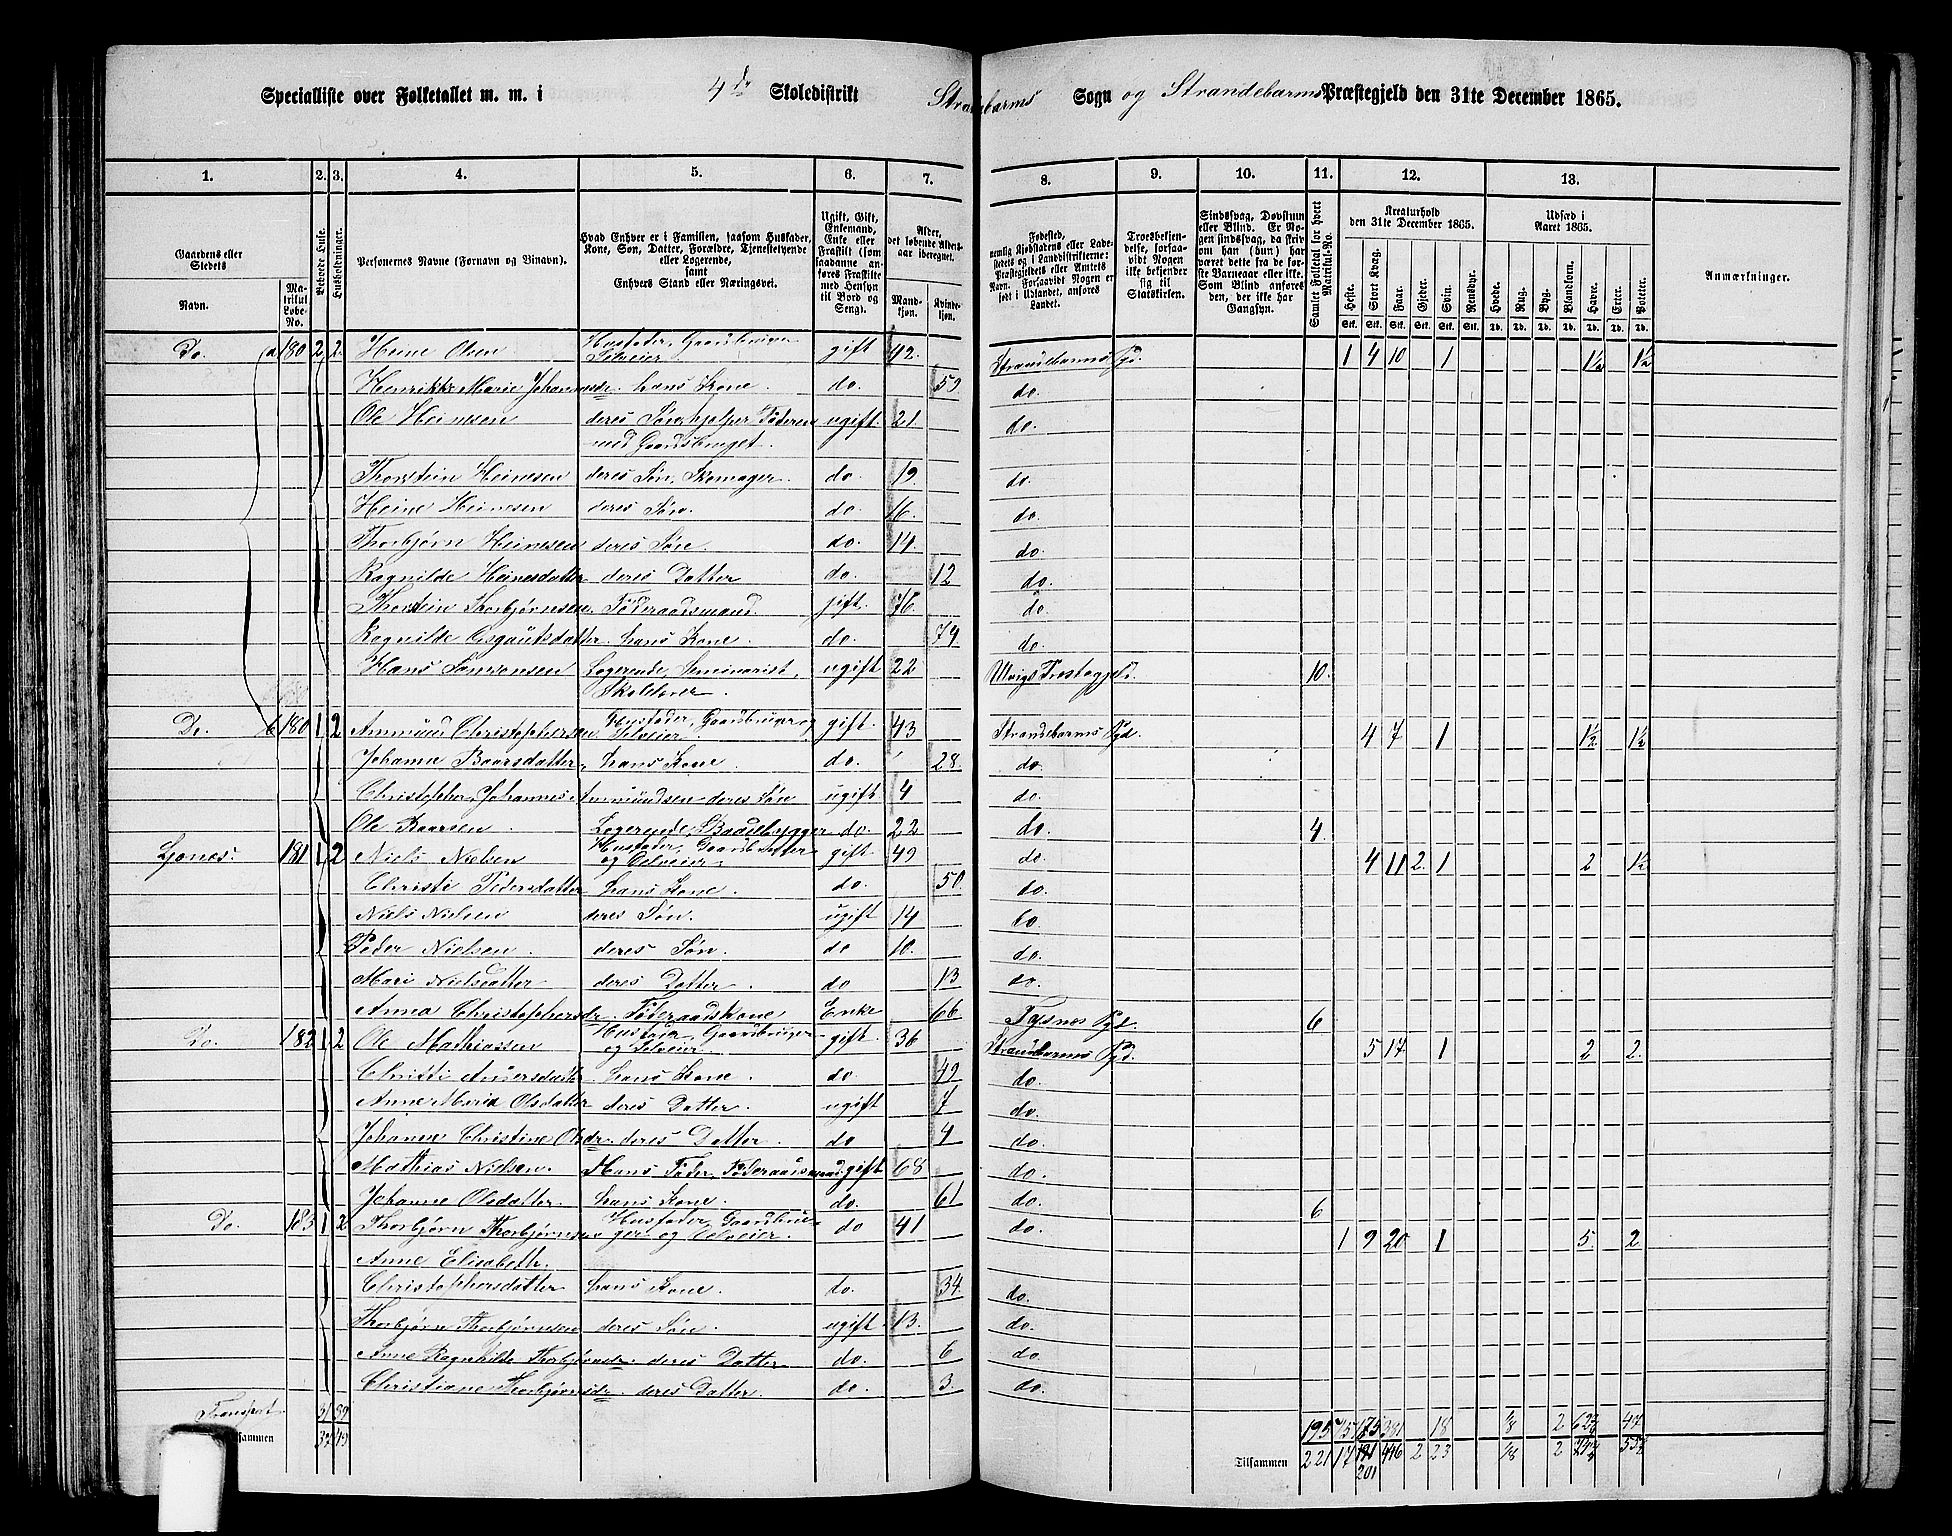 Specialliste over Folketallet m. m. i 4de Skoledistrikt Strandebarms Sogn og Strandebarms Præstegjeld den 31te December 1865.
1. 2. 3. 4. 5. 6. 7. 8. 9. 10. 11. 12. 13.
Gaardens eller Stedets
Navn.
Matrikul Løbe-No.
Beboede Huse.
Husholdninger.
Personernes Navne (Fornavn og Binavn).
Hvad Enhver er i Familien, saasom Husfader, Kone, Søn, Datter, Forældre, Tjenestetyende eller Logerende, samt Enhvers Stand eller Næringsvei.
Ugift, Gift, Enkemand, Enke eller Fraskilt (som saadanne anføres Fraskilte med Hensyn til Bord og Seng).
Alder, det løbende Aldersaar iberegnet.
Mandkjøn. Kvindekjøn.
Fødested, nemlig Kjøbstadens eller Ladestedets eller i Landdistrikterne: Præstegjeldets eller Amtets Navn. Forsaavidt Nogen er født i Udlandet, anføres Landet.
Troesbekjendelse, forsaavidt Nogen ikke bekjender sig til Statskirken.
Sindssvag, Døvstum eller Blind. Er Nogen sindssvag, da skrives, om han (hun) har været dette fra de første Barneaar eller ikke. Som Blind anføres den, der ikke har Gangsyn.
Samlet Folketal for hvert Matrikul-No.
Kreaturhold den 31te December 1865.
Heste. Stort Kvæg. Faar. Gjeder. Svin. Rensdyr.
Stk. Stk. Stk. Stk. Stk. Stk.
Udsæd i Aaret 1865.
Hvede. Rug. Byg. Blandkorn. Havre. Erter. Poteter.
Td. Td. Td. Td. Td. Td. Td.
Anmærkninger.
Do. a 180 2 2 Heine Olsen Husfader, Gaardbruger Selveier gift 42. Strandebarms Pgd. 1 4 10 1 1½ 1½
Henrikke Marie Johannesdr. hans Kone. do. 59 do.
Ole Heinesen deres Søn, hjelper Faderen ugift. 21. do.
med Gaardsbruget.
Thorstein Heinesen deres Søn, Skomager. do. 19. do.
Heine Heinesen deres Søn. do. 16. do.
Thorbjørn Heinesen deres Søn. do. 14. do.
Ragnilde Heinesdatter deres Datter do. 12 do.
Thorstein Thorbjørnsen. Føderaadsmand. gift. 76. do.
Ragnilde Asgautsdatter. hans Kone. do. 74 do.
Hans Samsonsen Logerende, Seminarist, ugift 22 Ulvigs Prestegjeld. 10.
Skolelærer.
Do. b 180 1 2 Ammund Christophersen Husfader, Gaardbruger og Selveier. gift. 43 Strandebarms Pgd. 4 7 1 1½ 1½
Johanne Baarsdatter, hans Kone. do. 28. do.
Christopher Johannes Ammundsen deres Søn ugift 4 do.
Ole Baarsen. Logerende, Baadebygger do. 22 do. 4.
Ljones. 181 1 2 Niels Nielsen Husfader, Gaardbruger og Selveier. gift. 49 do. 4 11 2. 1 2 1½
Christi Pedersdatter hans Kone. do. 50. do.
Niels Nielsen deres Søn. ugift 14 do.
Peder Nielsen. deres Søn. do 10. do.
Mari Nielsdatter deres Datter do 13 do.
Anna Christophersdr. Føderaadskone Enke 66 Tysnes Pgd. 6
Do. 182 1 2 Ole Mathiassen Husfader, Gaardbruger og Selveier. gift. 36 Strandebarms Pgd. 5 17 1 2 2.
Christi Andersdatter. hans Kone. do 49 do.
Anne Maria Olsdatter deres Datter. ugift 7 do.
Johanne Christine Olsdr. deres Datter. do 4 do.
Mathias Nielsen. Hans Fader, Føderaadsmand. gift 68 do.
Johanne Olsdatter. hans Kone. do. 61 do. 6
Do. 183 1 2 Thorbjørn Thorbjørnsen Husfader, Gaardbruger og Selveier. do 41 do. 1 9 20 1 5. 2
Anne Elisabeth
Christophersdatter hans Kone. do. 34. do.
Thorbjørn Thorbjørnsen deres Søn. ugift. 13. do.
Anne Ragnhilde Thorbjørnsdr. deres Datter do. 6 do.
Christiane Thorbjørnsdr. deres Datter. do. 3. do.
Transport 195 18 ⅛ 2
Tilsammen 37 49 Tilsammen 221 17 201 446 2 23 ⅛ 2